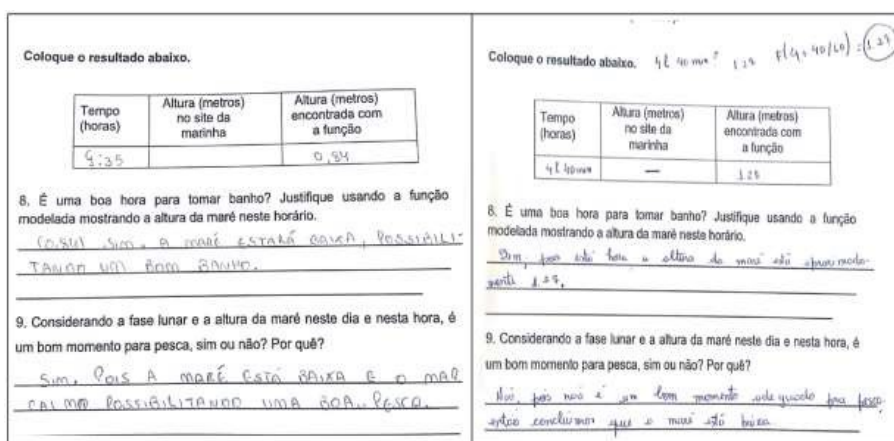 Coloque o resultado abaixo.
Tempo (horas)
Altura (metros) no site da marinha
Altura (metros) encontrada com a função
9:35
0,84
8. É uma boa hora para tomar banho? Justifique usando a função
modelada mostrando a altura da maré neste horário.
(0.84) SIM. A MARÉ ESTARÁ BAIXA, POSSIBILI-
TANDO UM BOM BANHO.
9. Considerando a fase lunar e a altura da maré neste dia e nesta hora, é
um bom momento para pesca, sim ou não? Por quê?
SIM, POIS A MARÉ ESTÁ BAIXA E O MAR
CALMO POSSIBILITANDO UMA BOA PESCA.
Coloque o resultado abaixo. 40 min
F(4+40/60) = 1.27
Tempo (horas)
Altura (metros) no site da marinha
Altura (metros) encontrada com a função
40 min
—
8. É uma boa hora para tomar banho? Justifique usando a função
modelada mostrando a altura da maré neste horário.
Sim, pois hora a altura da maré está aproximada-
mente
9. Considerando a fase lunar e a altura da maré neste dia e nesta hora, é
um bom momento para pesca, sim ou não? Por quê?
Não, pois não é um bom momento adequado pra pesca
então concluimos que a maré está baixa